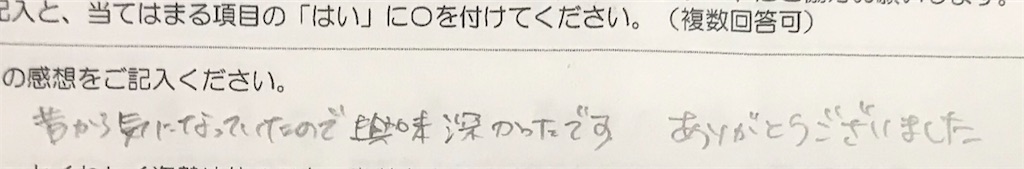 記入と、当てはまる項目の「はい」に〇を付けてください。（複数回答可）
の感想をご記入ください。
昔から気になっていたので興味深かったです ありがとうございました